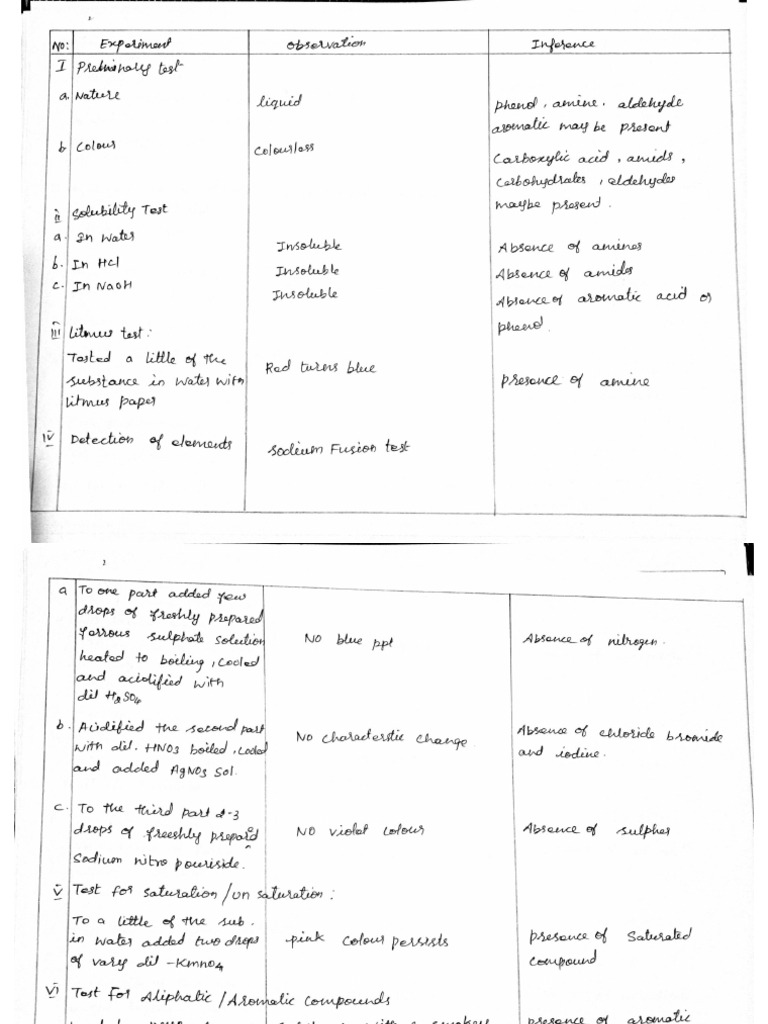 No: Experiment Observation Inference
I Preliminary test
a. Nature liquid phenol, amine, aldehyde
aromatic may be present
b Colour Colourless Carboxylic acid, amids,
Carbohydrates, aldehydes
maybe present.
ii Solubility Test
a. In Water Insoluble Absence of amines
b. In HCl Insoluble Absence of amids
c. In NaOH Insoluble Absence of aromatic acid or
phenol.
iii Litmus test:
Tested a little of the
substance in water with
litmus paper
Red turns blue presence of amine
iv Detection of elements Sodium Fusion test
a To one part added few
drops of freshly prepared
ferrous sulphate solution
heated to boiling, cooled
and acidified with
dil H2SO4
No blue ppt Absence of nitrogen.
b. Acidified the second part
with dil. HNO3 boiled, cooled
and added AgNO3 Sol.
No characterstic change. Absence of chloride bromide
and iodine.
c. To the third part 2-3
drops of freeshly prepard
Sodium nitro pouriside.
NO violet colour Absence of sulpher
v Test for saturation/un saturation:
To a little of the sub.
in water added two drops
of vary dil -Kmno4
pink colour persists presence of Saturated
compound
vi Test for Aliphatic/Aromatic compounds
presence of aromatic